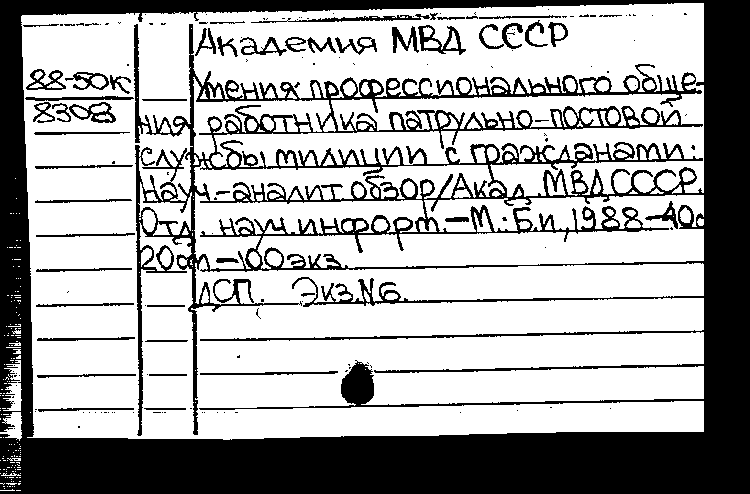 Академия МВД СССР
88-50К Умения профессионального обще-
8308 ния работника патрульно-постовой
службы милиции с гражданами:
Науч.-аналит обзор/Акад. МВД СССР.
Отд. науч.информ.-М.: Б.и., 1988-40с
20см.-100экз.
ДСП. Экз.№6.